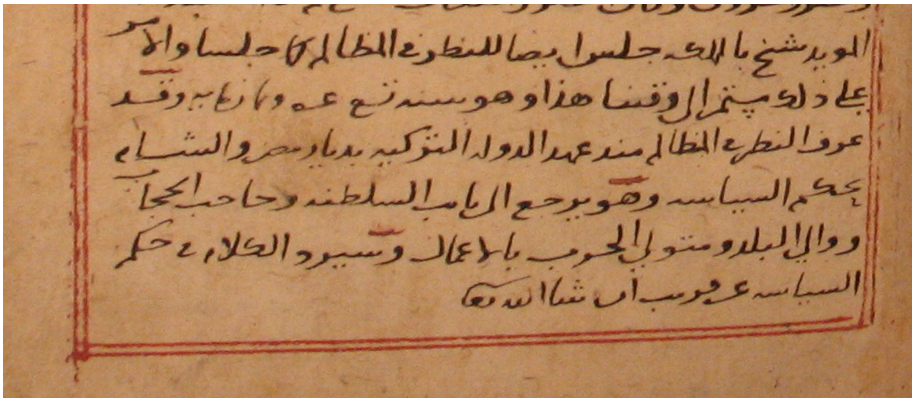 المويد شيخ بالملك جلس ايضا للنظر في المظالم كما جلسا والامر
على ذلك مستمر الى وقتنا هذا وهو سنة تسع عشرة وثمانمايه وقد
عرف النظر في المظالم منذ عهد الدوله التركيه بديار مصر والشام
بحكم السياسه وهو يرجع الى نايب السلطنه وحاجب الحجاب
ووالي البلد ومتولي الحرب بالاعمال وسيرد الكلام في حكم
السياسه عن قريب ان شا الله تعا